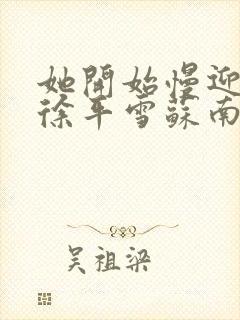 她開始慢迎
徐平雪蘇南
吴祖梁